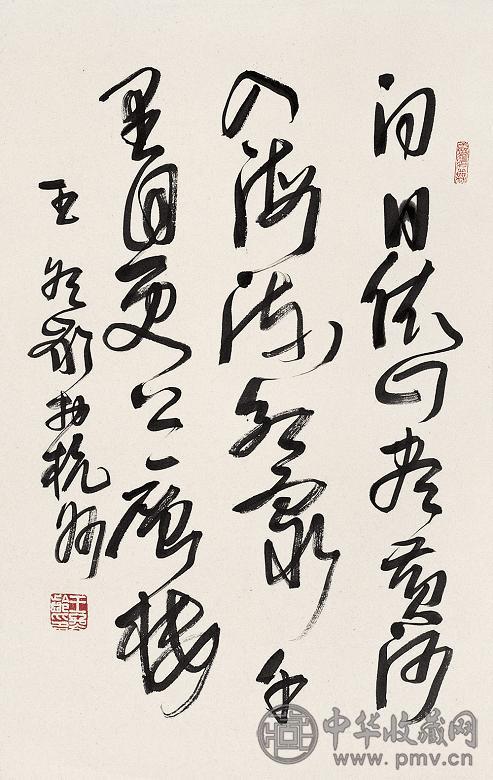 白日依山盡黄河
入海流欲窮千
里目更上一層樓
王冬齡於杭州
中华收藏网
www.pmv.cn